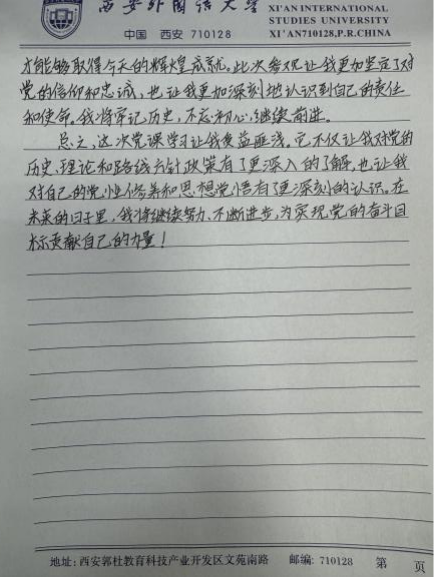 西安外国语大学 XI'AN INTERNATIONAL
STUDIES UNIVERSITY
中国 西安 710128 XI'AN710128,P.R.CHINA
才能够取得今天的辉煌成就。此次参观让我更加坚定了对
党的信仰和忠诚，也让我更加深刻地认识到自己的责任
和使命。我将牢记历史，不忘初心，继续前进。
总之，这次党课学习让我受益匪浅。它不仅让我对党的
历史、理论和路线方针政策有了更深入的了解，也让我
对自己的党性修养和思想觉悟有了更深刻的认识。在
未来的日子里，我将继续努力、不断进步，为实现党的奋斗目
标贡献自己的力量！
地址: 西安郭杜教育科技产业开发区文苑南路 邮编: 710128 第 页